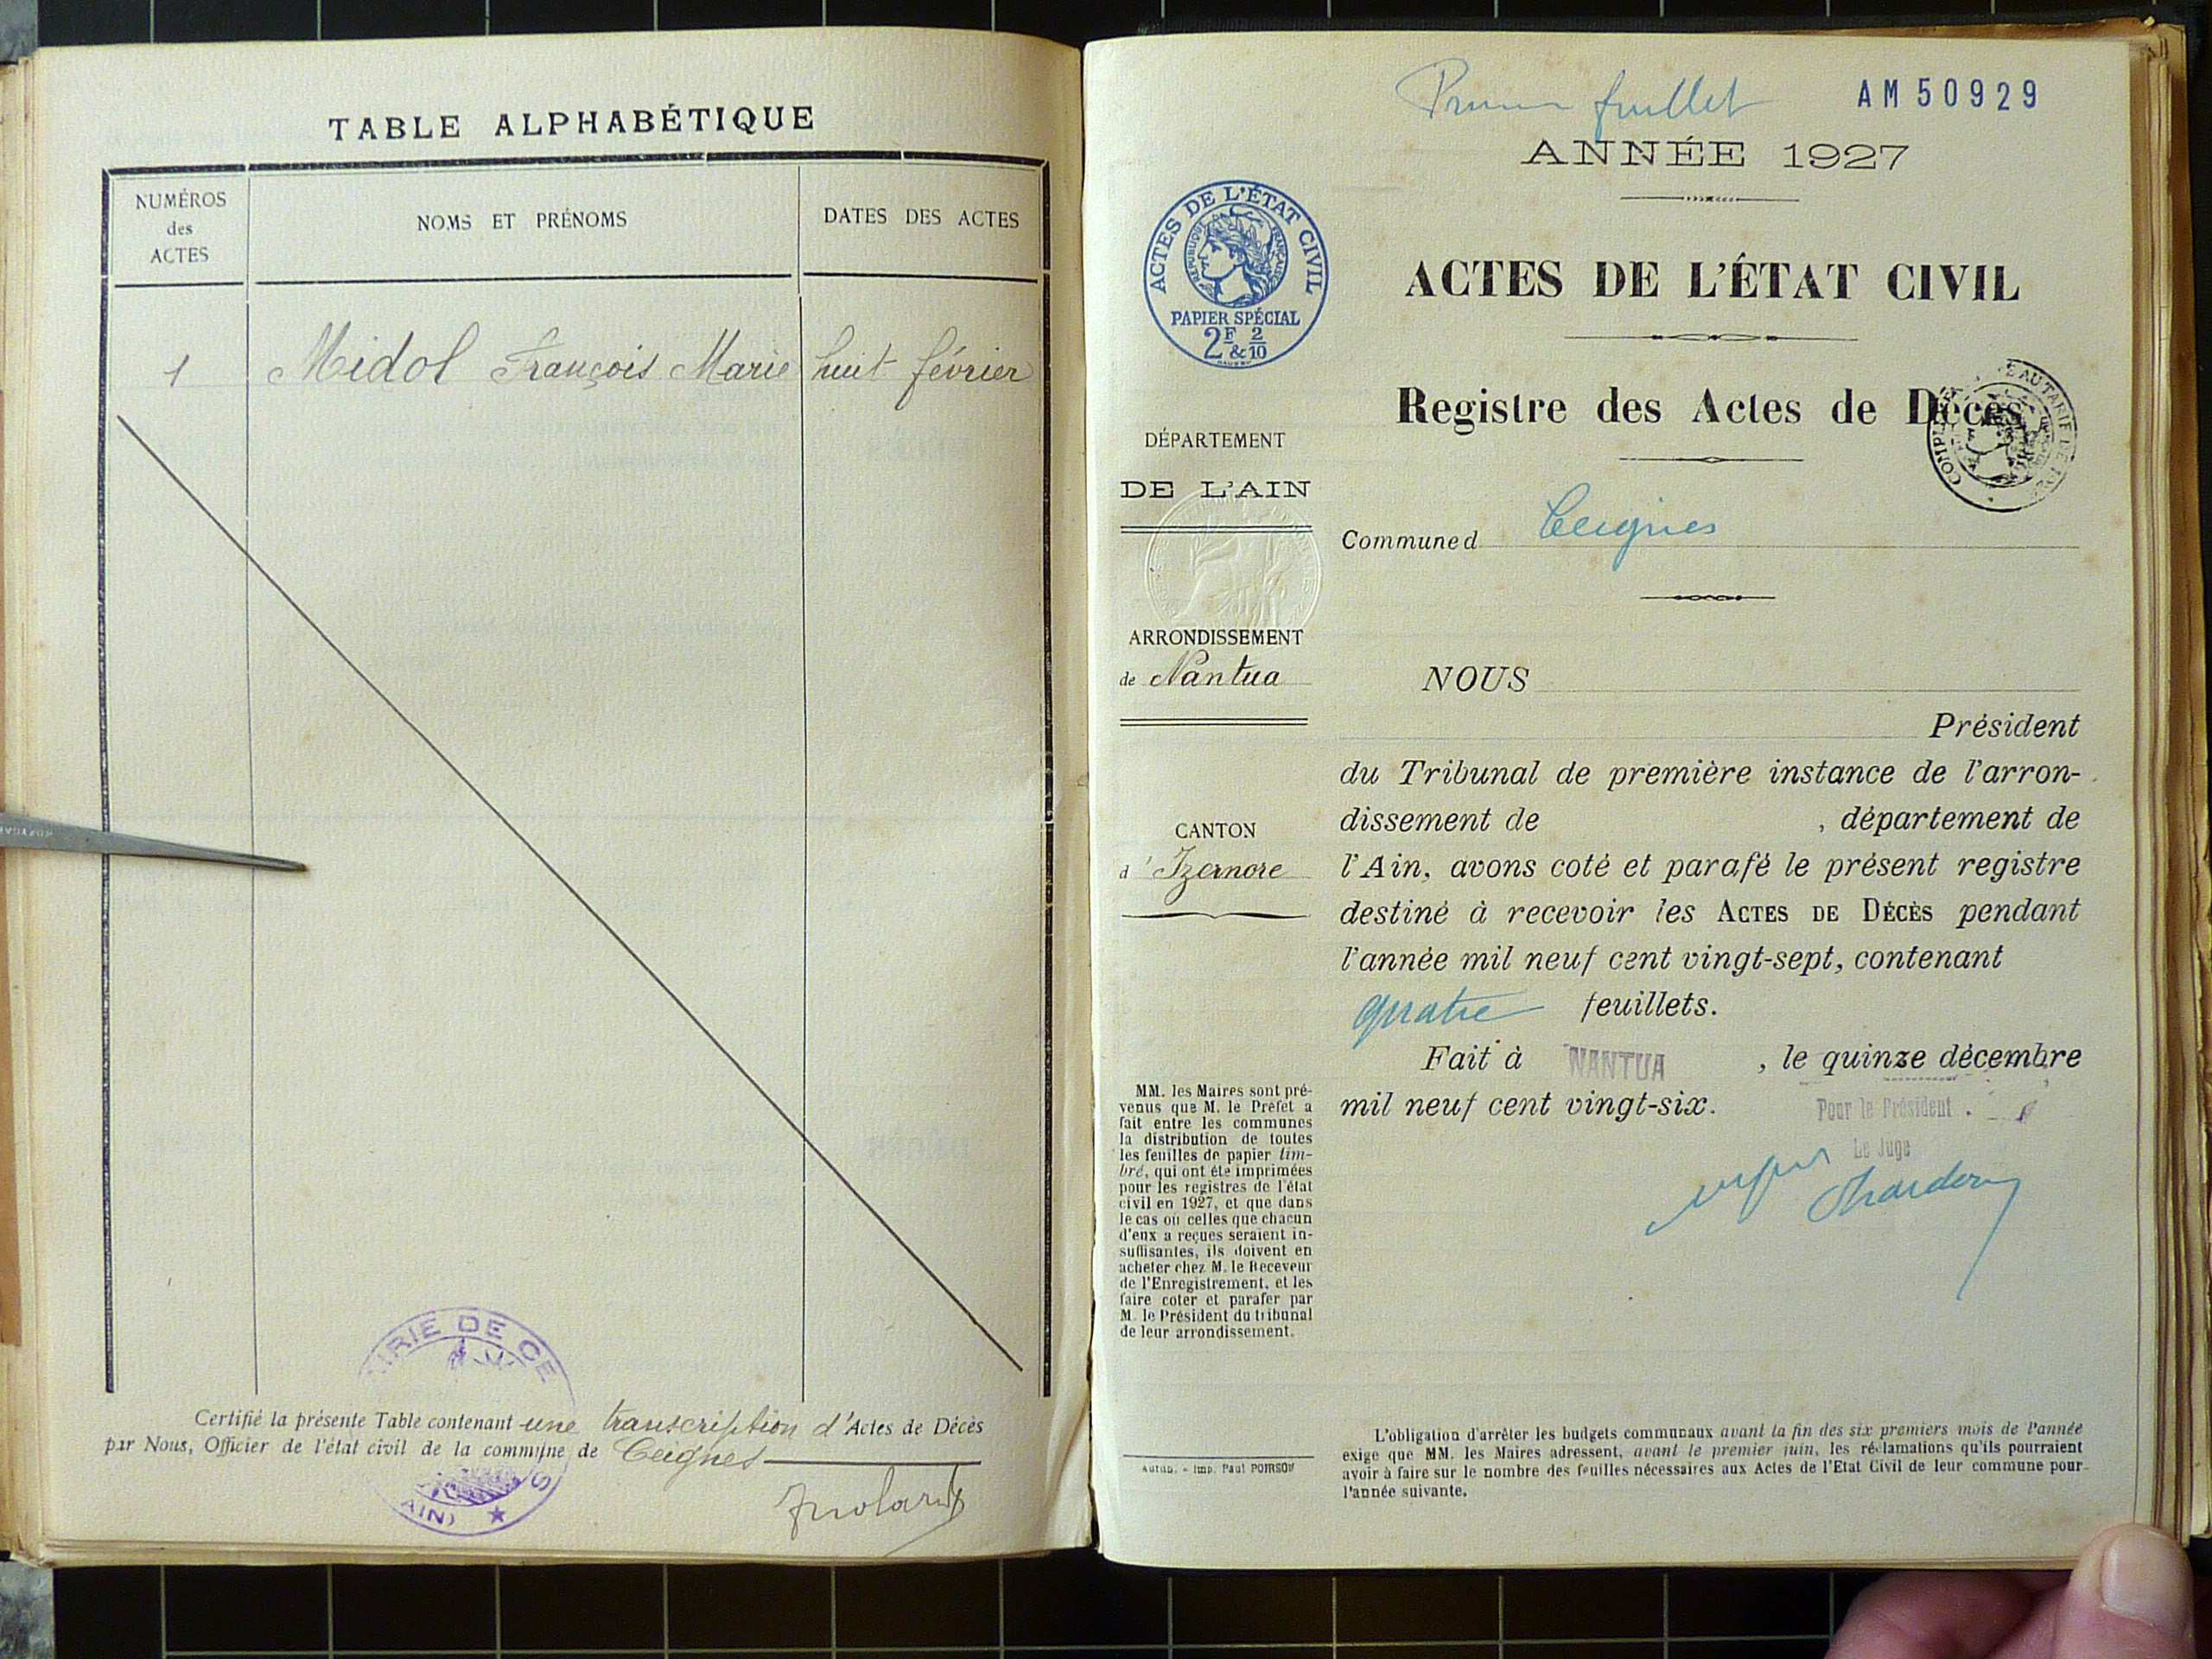 TABLE ALPHABÉTIQUE
NUMÉROS
des
ACTES
NOMS ET PRÉNOMS
DATES DES ACTES
1 Midol François Marie huit février
MAIRIE DE CEIGNES
(AIN) ★
Certifié la présente Table contenant une transcription d'Actes de Décès
par Nous, Officier de l'état civil de la commune de Ceignes
Premier feuillet
AM 50929
ANNÉE 1927
ACTES DE L'ÉTAT CIVIL
RÉPUBLIQUE FRANÇAISE
PAPIER SPÉCIAL
2F & 2/10
ACTES DE L'ÉTAT CIVIL
Registre des Actes de Décès
DÉPARTEMENT
DE L'AIN
Commune d Ceignes
ARRONDISSEMENT
de Nantua
CANTON
d'Izernore
NOUS
Président
du Tribunal de première instance de l'arron-
dissement de , département de
l'Ain, avons coté et parafé le présent registre
destiné à recevoir les ACTES DE DÉCÈS pendant
l'année mil neuf cent vingt-sept, contenant
quatre feuillets.
Fait à NANTUA , le quinze décembre
mil neuf cent vingt-six.
Pour le Président
Le Juge
MM. les Maires sont pré-
venus que M. le Préfet a
fait entre les communes
la distribution de toutes
les feuilles de papier tim-
bré, qui ont été imprimées
pour les registres de l'état
civil en 1927, et que dans
le cas où celles que chacun
d'eux a reçues seraient in-
suffisantes, ils doivent en
acheter chez M. le Receveur
de l'Enregistrement, et les
faire coter et parafer par
M. le Président du tribunal
de leur arrondissement.
Autun. - Imp. Paul POIRSON
L'obligation d'arrêter les budgets communaux avant la fin des six premiers mois de l'année
exige que MM. les Maires adressent, avant le premier juin, les réclamations qu'ils pourraient
avoir à faire sur le nombre des feuilles nécessaires aux Actes de l'Etat Civil de leur commune pour
l'année suivante.